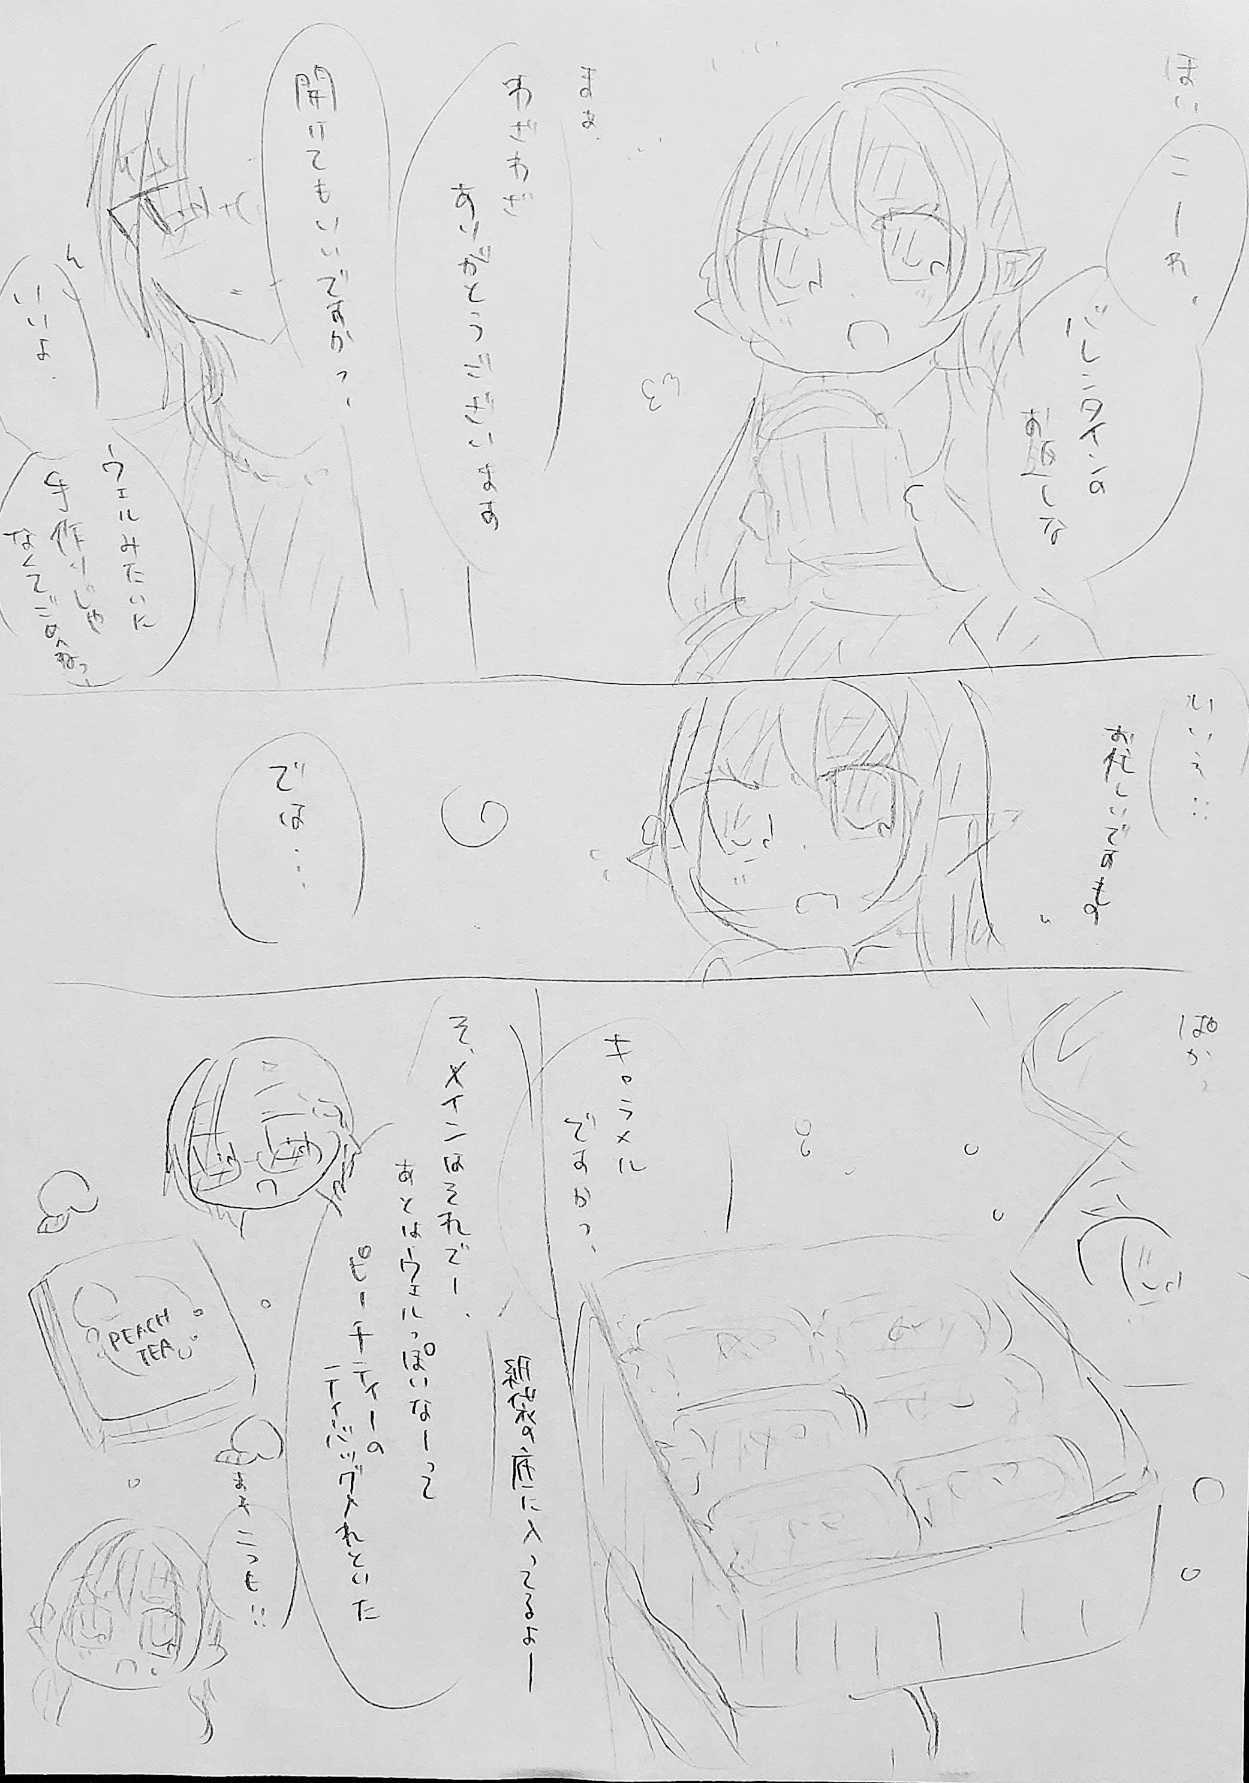 はい
こーれ、
バレンタインの
お返しな
まぁ、
わざわざ
ありがとうございます
開けてもいいですかっ、
ん
いいよ、
ウェルみたいに
手作りじゃ
なくてごめんねっ
いいえ…
お礼しいですもの
では…
ぱかっ
キャラメル
ですかっ、
そ、メインはそれでー、
あとはウェルっぽいなーって
ピーチティーの
ティバッグ入れといた
紙袋の底に入ってるよー
PEACH
TEA
まぁ
こっも…